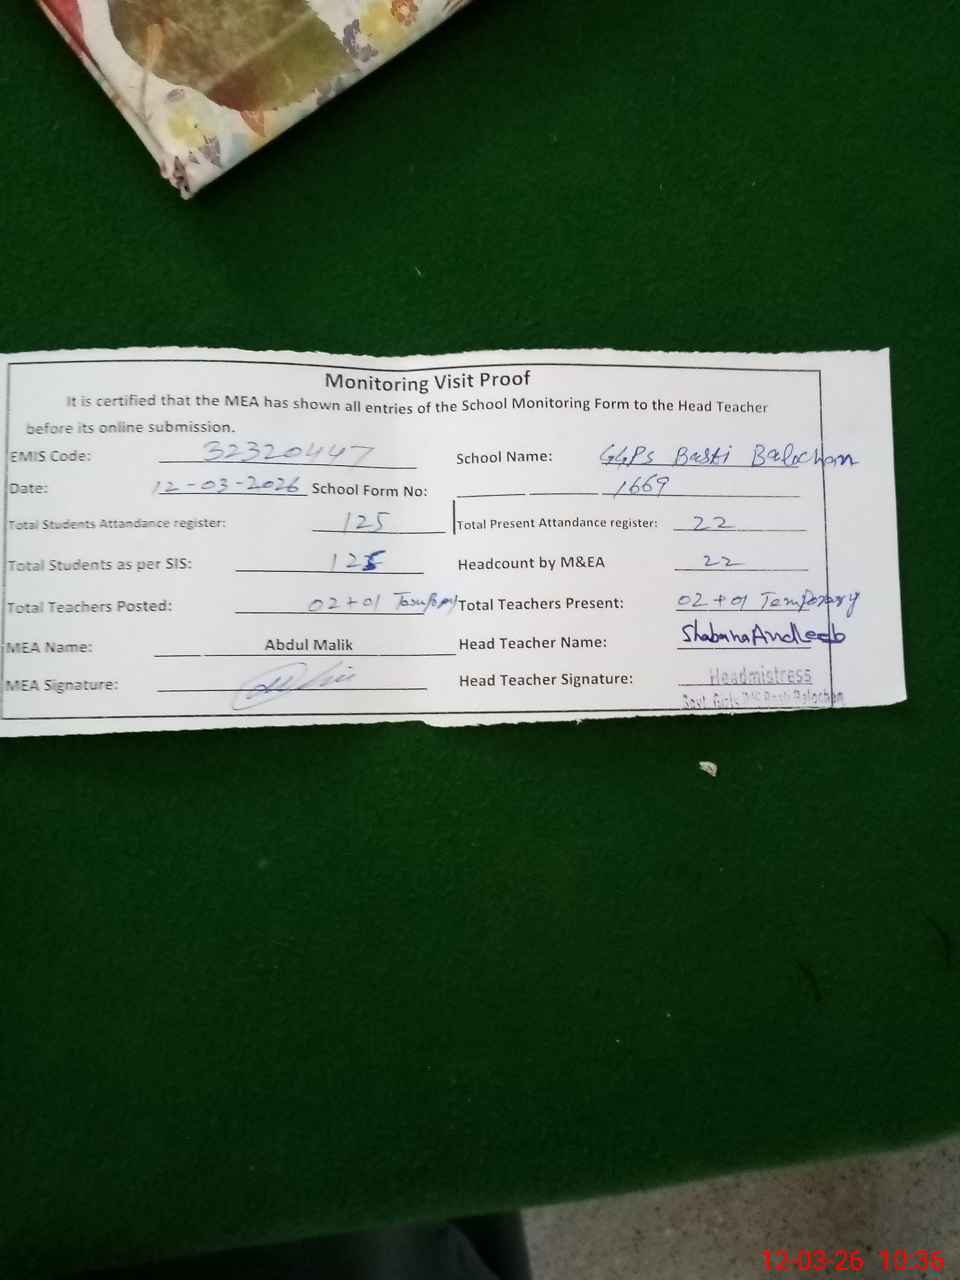 Monitoring Visit Proof
It is certified that the MEA has shown all entries of the School Monitoring Form to the Head Teacher
before its online submission.
EMIS Code: 32320447 School Name: GGPS Basti Balochan
Date: 12-03-2026 School Form No: 1669
Total Students Attandance register: 125 Total Present Attandance register: 22
Total Students as per SIS: 125 Headcount by M&EA 22
Total Teachers Posted: 02+01 Total Teachers Present: 02+01 Temporary
MEA Name: Abdul Malik Head Teacher Name: Shabana Andleeb
MEA Signature: Head Teacher Signature: Headmistress
Govt. Girls Basti Balochan
12-03-26 10:36